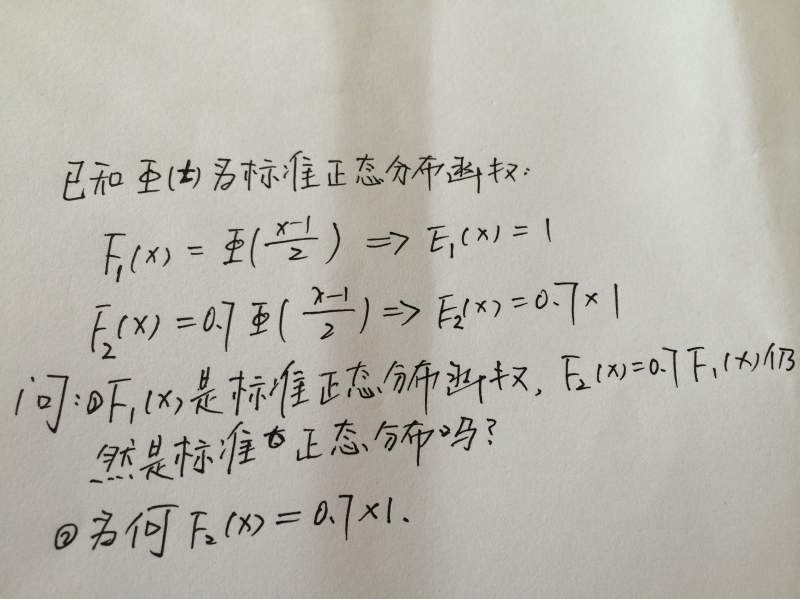 已知 Φ(t) 为标准正态分布函数:
F₁(x) = Φ(\frac{x-1}{2}) => E₁(x) = 1
F₂(x) = 0.7 Φ(\frac{x-1}{2}) => E₂(x) = 0.7 × 1
问:① F₁(x) 是标准正态分布函数, F₂(x) = 0.7 F₁(x) 仍
然是标准正态分布吗?
② 为何 F₂(x) = 0.7 × 1.